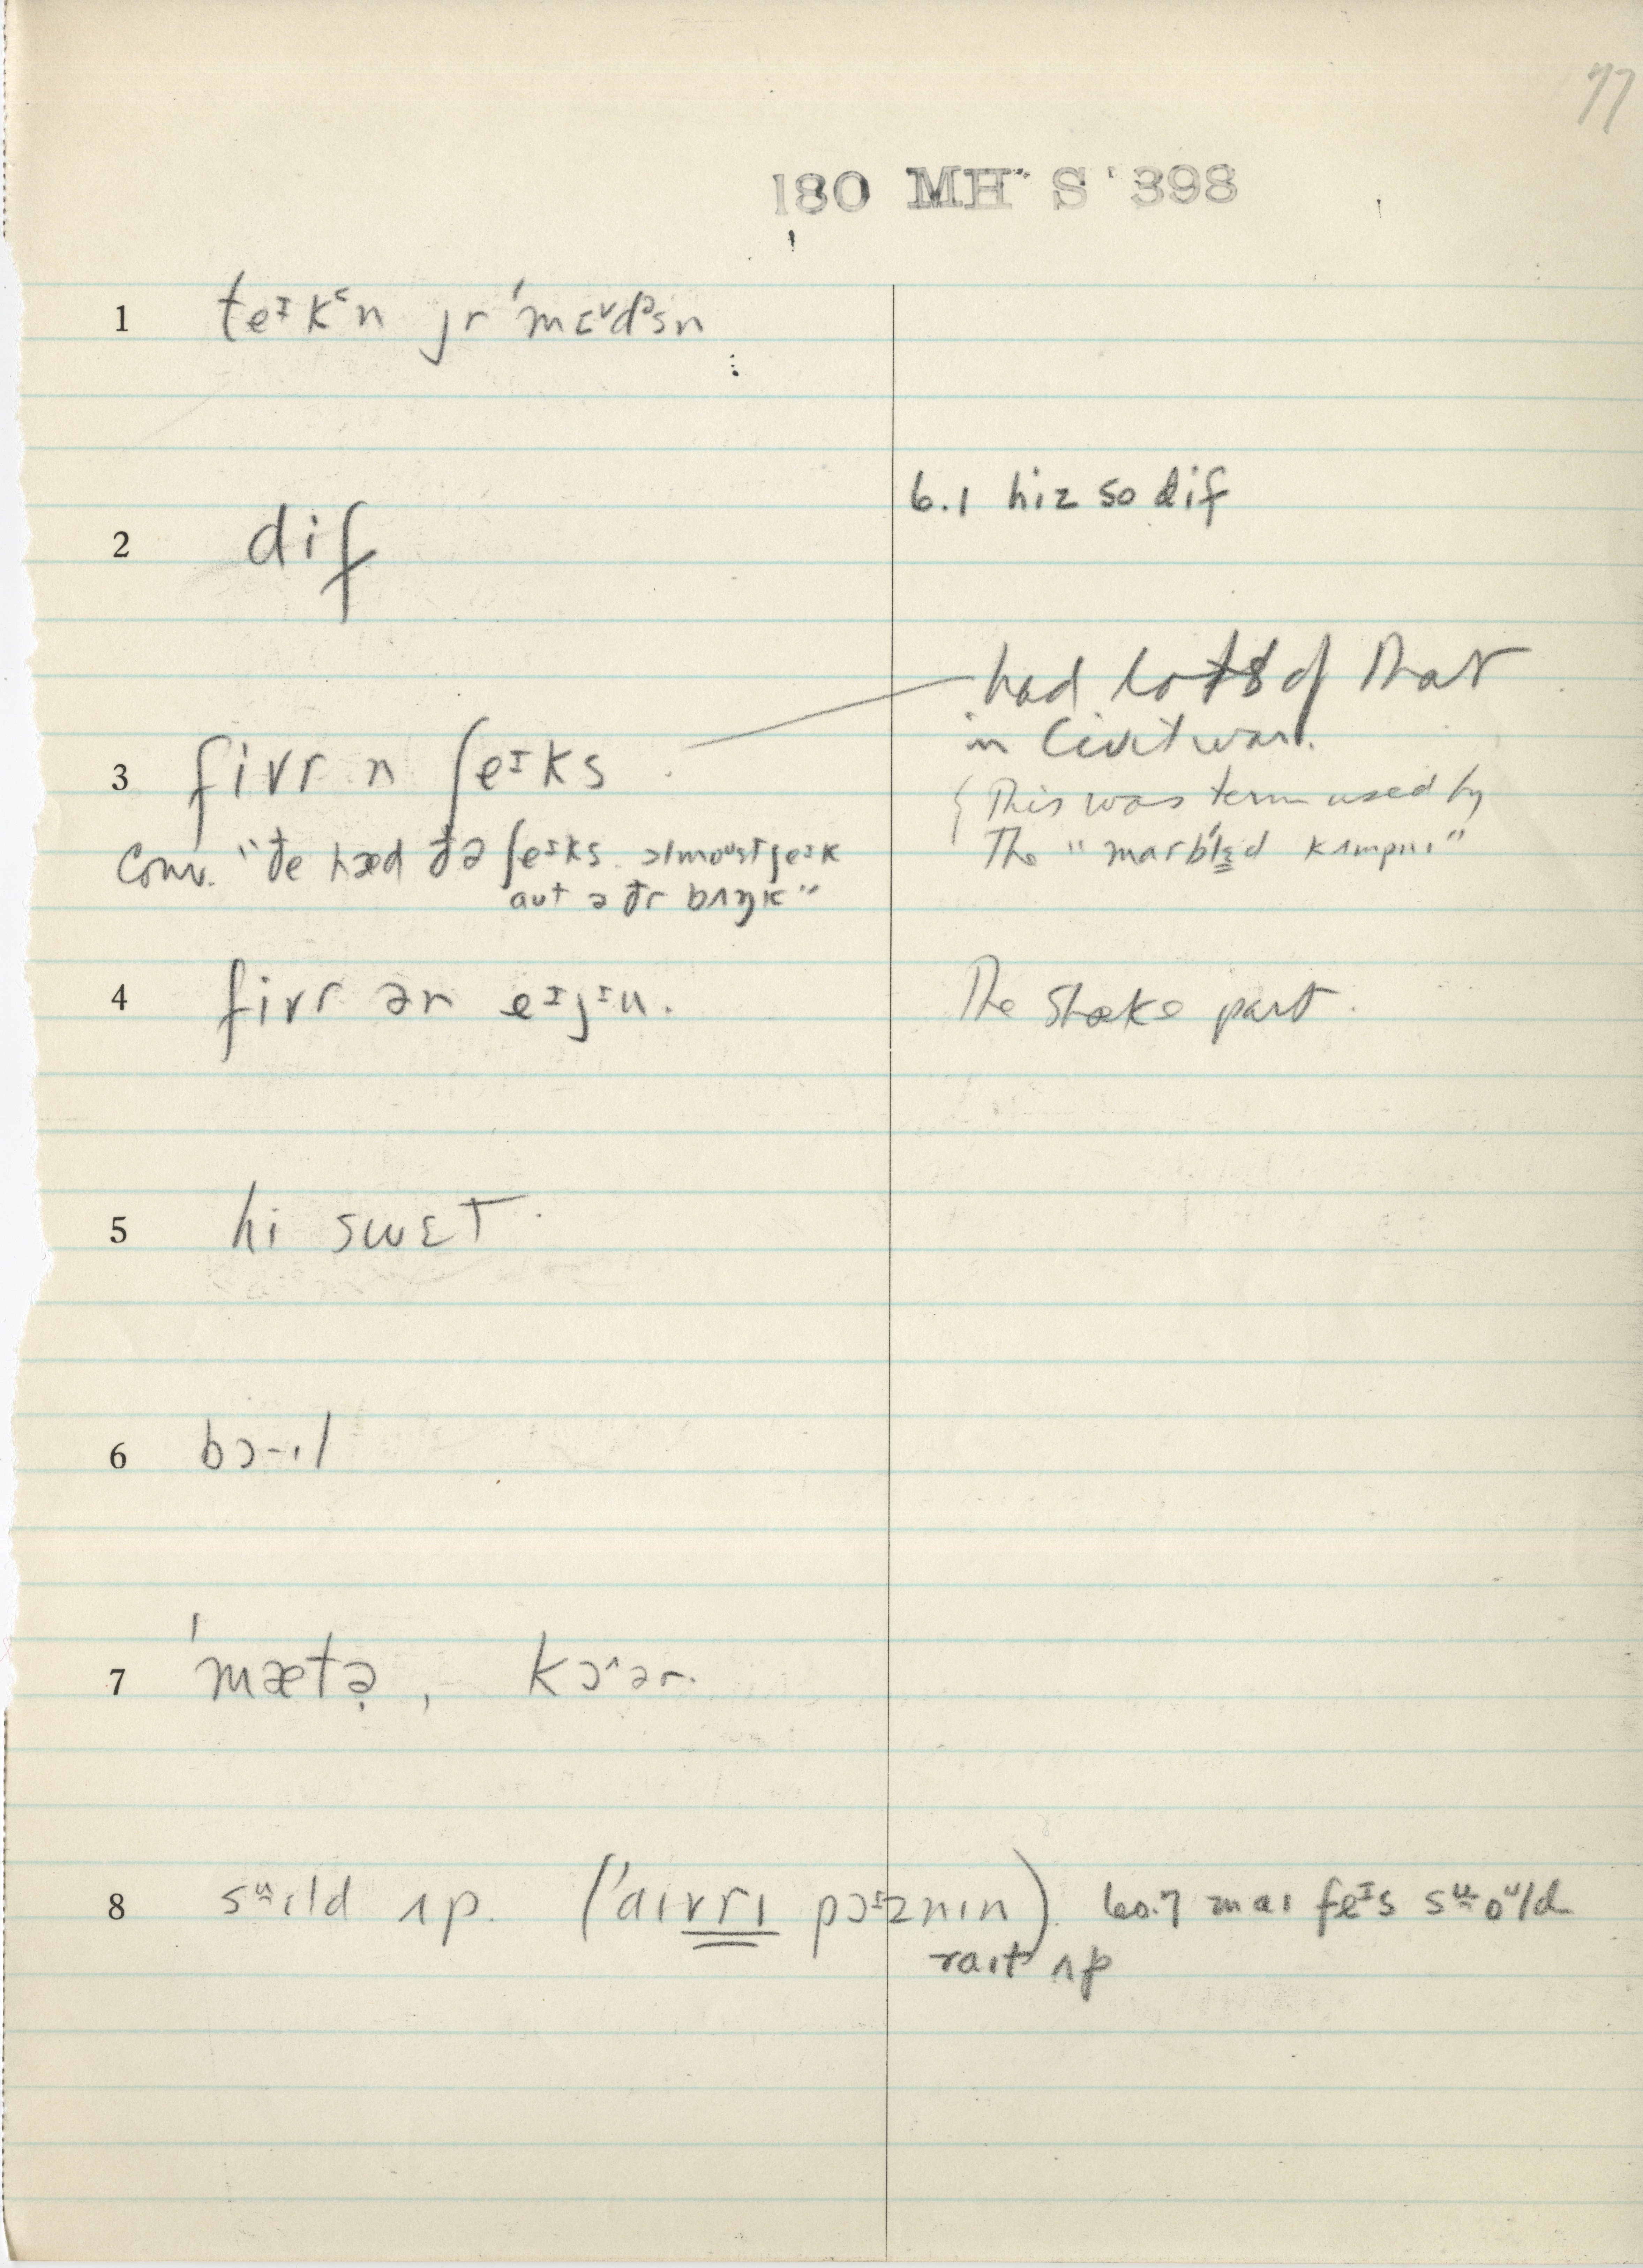 77
180 MH S 398
1 teᶦkᵋn jr ˈmɛᵛdᵊsn
6.1 hiz so dif
2 dif
had lots of that
in Civil war.
3 fivr n ʃeᶦks
This was term used by
conv. "ðe hæd ðə ʃeᶦks ɔlmoᵘst ʃeᶦk
The "marbled kʌmpnɪ"
aut ə ðr bʌŋk"
4 fivr ən eᶦjᶦu. The Shake part.
5 hi swɛt
6 bɔ-ɪl
7 ˈmætə̣, kɔ˄ər.
8 sᵚɛld ʌp. (ˈaɪvrɪ pɔᶦznɪn) 60.7 maɪ feᶦs sᵚoᵘld
raɪt ʌp